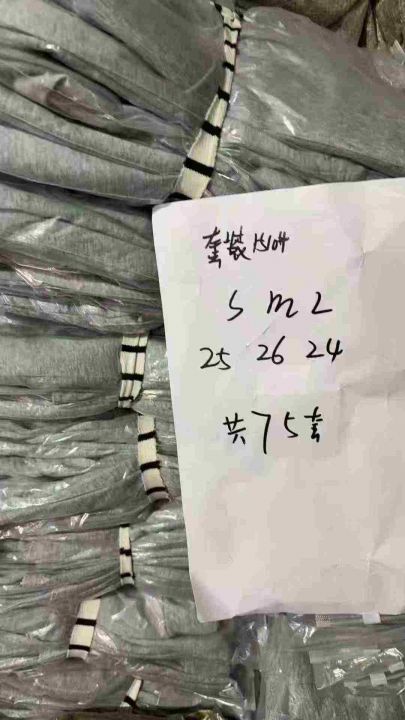 套装1504
S M L
25 26 24
共75套